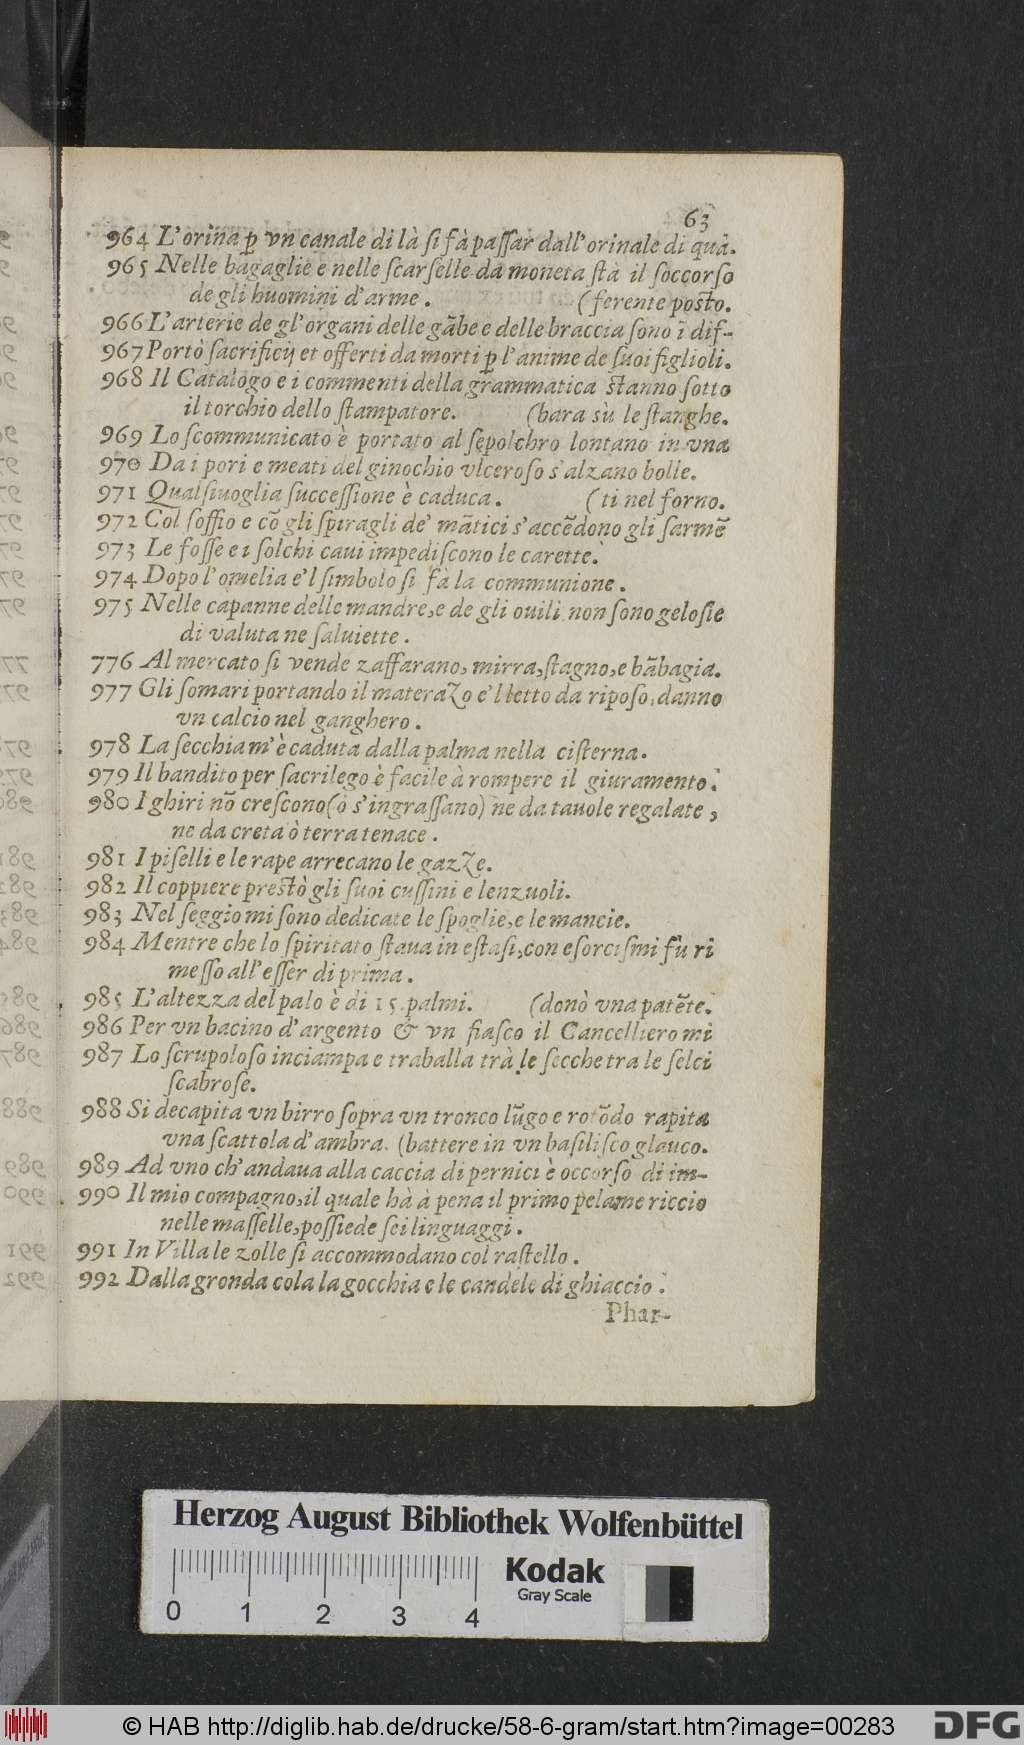 63
964 L'orina ꝑ vn canale di là ſi fà paſſar dall'orinale di quà.
965 Nelle bagaglie e nelle ſcarſelle da moneta ſtà il ſoccorſo
de gli huomini d'arme. (ferente poſto.
966 L'arterie de gl'organi delle gãbe e delle braccia ſono ĩ dif-
967 Portò ſacrificij et offerti da morti ꝑ l'anime de ſuoi figlioli.
968 Il Catalogo e i commenti della grammatica ſtanno ſotto
il torchio dello ſtampatore. (bara sù le ſtanghe.
969 Lo ſcommunicato è portato al ſepolchro lontano in vna
970 Da i pori e meati del ginochio vlceroſo s'alzano bolle.
971 Qualſiuoglia ſucceſſione è caduca. (ti nel forno.
972 Col ſoffio e cõ gli ſpiragli de' mãtici s'accẽdono gli ſarmẽ
973 Le foſſe e i ſolchi caui impediſcono le carette.
974 Dopo l'omelia e'l ſimbolo ſi fà la communione.
975 Nelle capanne delle mandre, e de gli ouili non ſono geloſie
di valuta ne ſaluiette.
776 Al mercato ſi vende zaffarano, mirra, ſtagno, e bãbagia.
977 Gli ſomari portando il materazo e'l letto da ripoſo, danno
vn calcio nel ganghero.
978 La ſecchia m'è caduta dalla palma nella ciſterna.
979 Il bandito per ſacrilego è facile à rompere il giuramento.
980 I ghiri nõ creſcono (ò s'ingraſſano) ne da tauole regalate,
ne da creta ò terra tenace.
981 I piſelli e le rape arrecano le gazze.
982 Il coppiere preſtò gli ſuoi cuſſini e lenzuoli.
983 Nel ſeggio mi ſono dedicate le ſpoglie, e le mancie.
984 Mentre che lo ſpiritato ſtaua in eſtaſi, con eſorciſmi fù ri
meſſo all'eſſer di prima.
985 L'altezza del palo è di 15. palmi. (donò vna patẽte.
986 Per vn bacino d'argento & vn fiaſco il Cancelliero mi
987 Lo ſcrupoloſo inciampa e traballa trà le ſecche tra le ſelci
ſcabroſe.
988 Si decapita vn birro ſopra vn tronco lũgo e rotõdo rapita
vna ſcattola d'ambra. (battere in vn baſiliſco glauco.
989 Ad vno ch'andaua alla caccia di pernici è occorſo di im-
990 Il mio compagno, il quale hà à pena il primo pelame riccio
nelle maſſelle, poſſiede ſei linguaggi.
991 In Villa le zolle ſi accommodano col raſtello.
992 Dalla gronda cola la gocchia e le candele di ghiaccio.
Phar-
Herzog August Bibliothek Wolfenbüttel
Kodak
Gray Scale
0 1 2 3 4
© HAB http://diglib.hab.de/drucke/58-6-gram/start.htm?image=00283
DFG